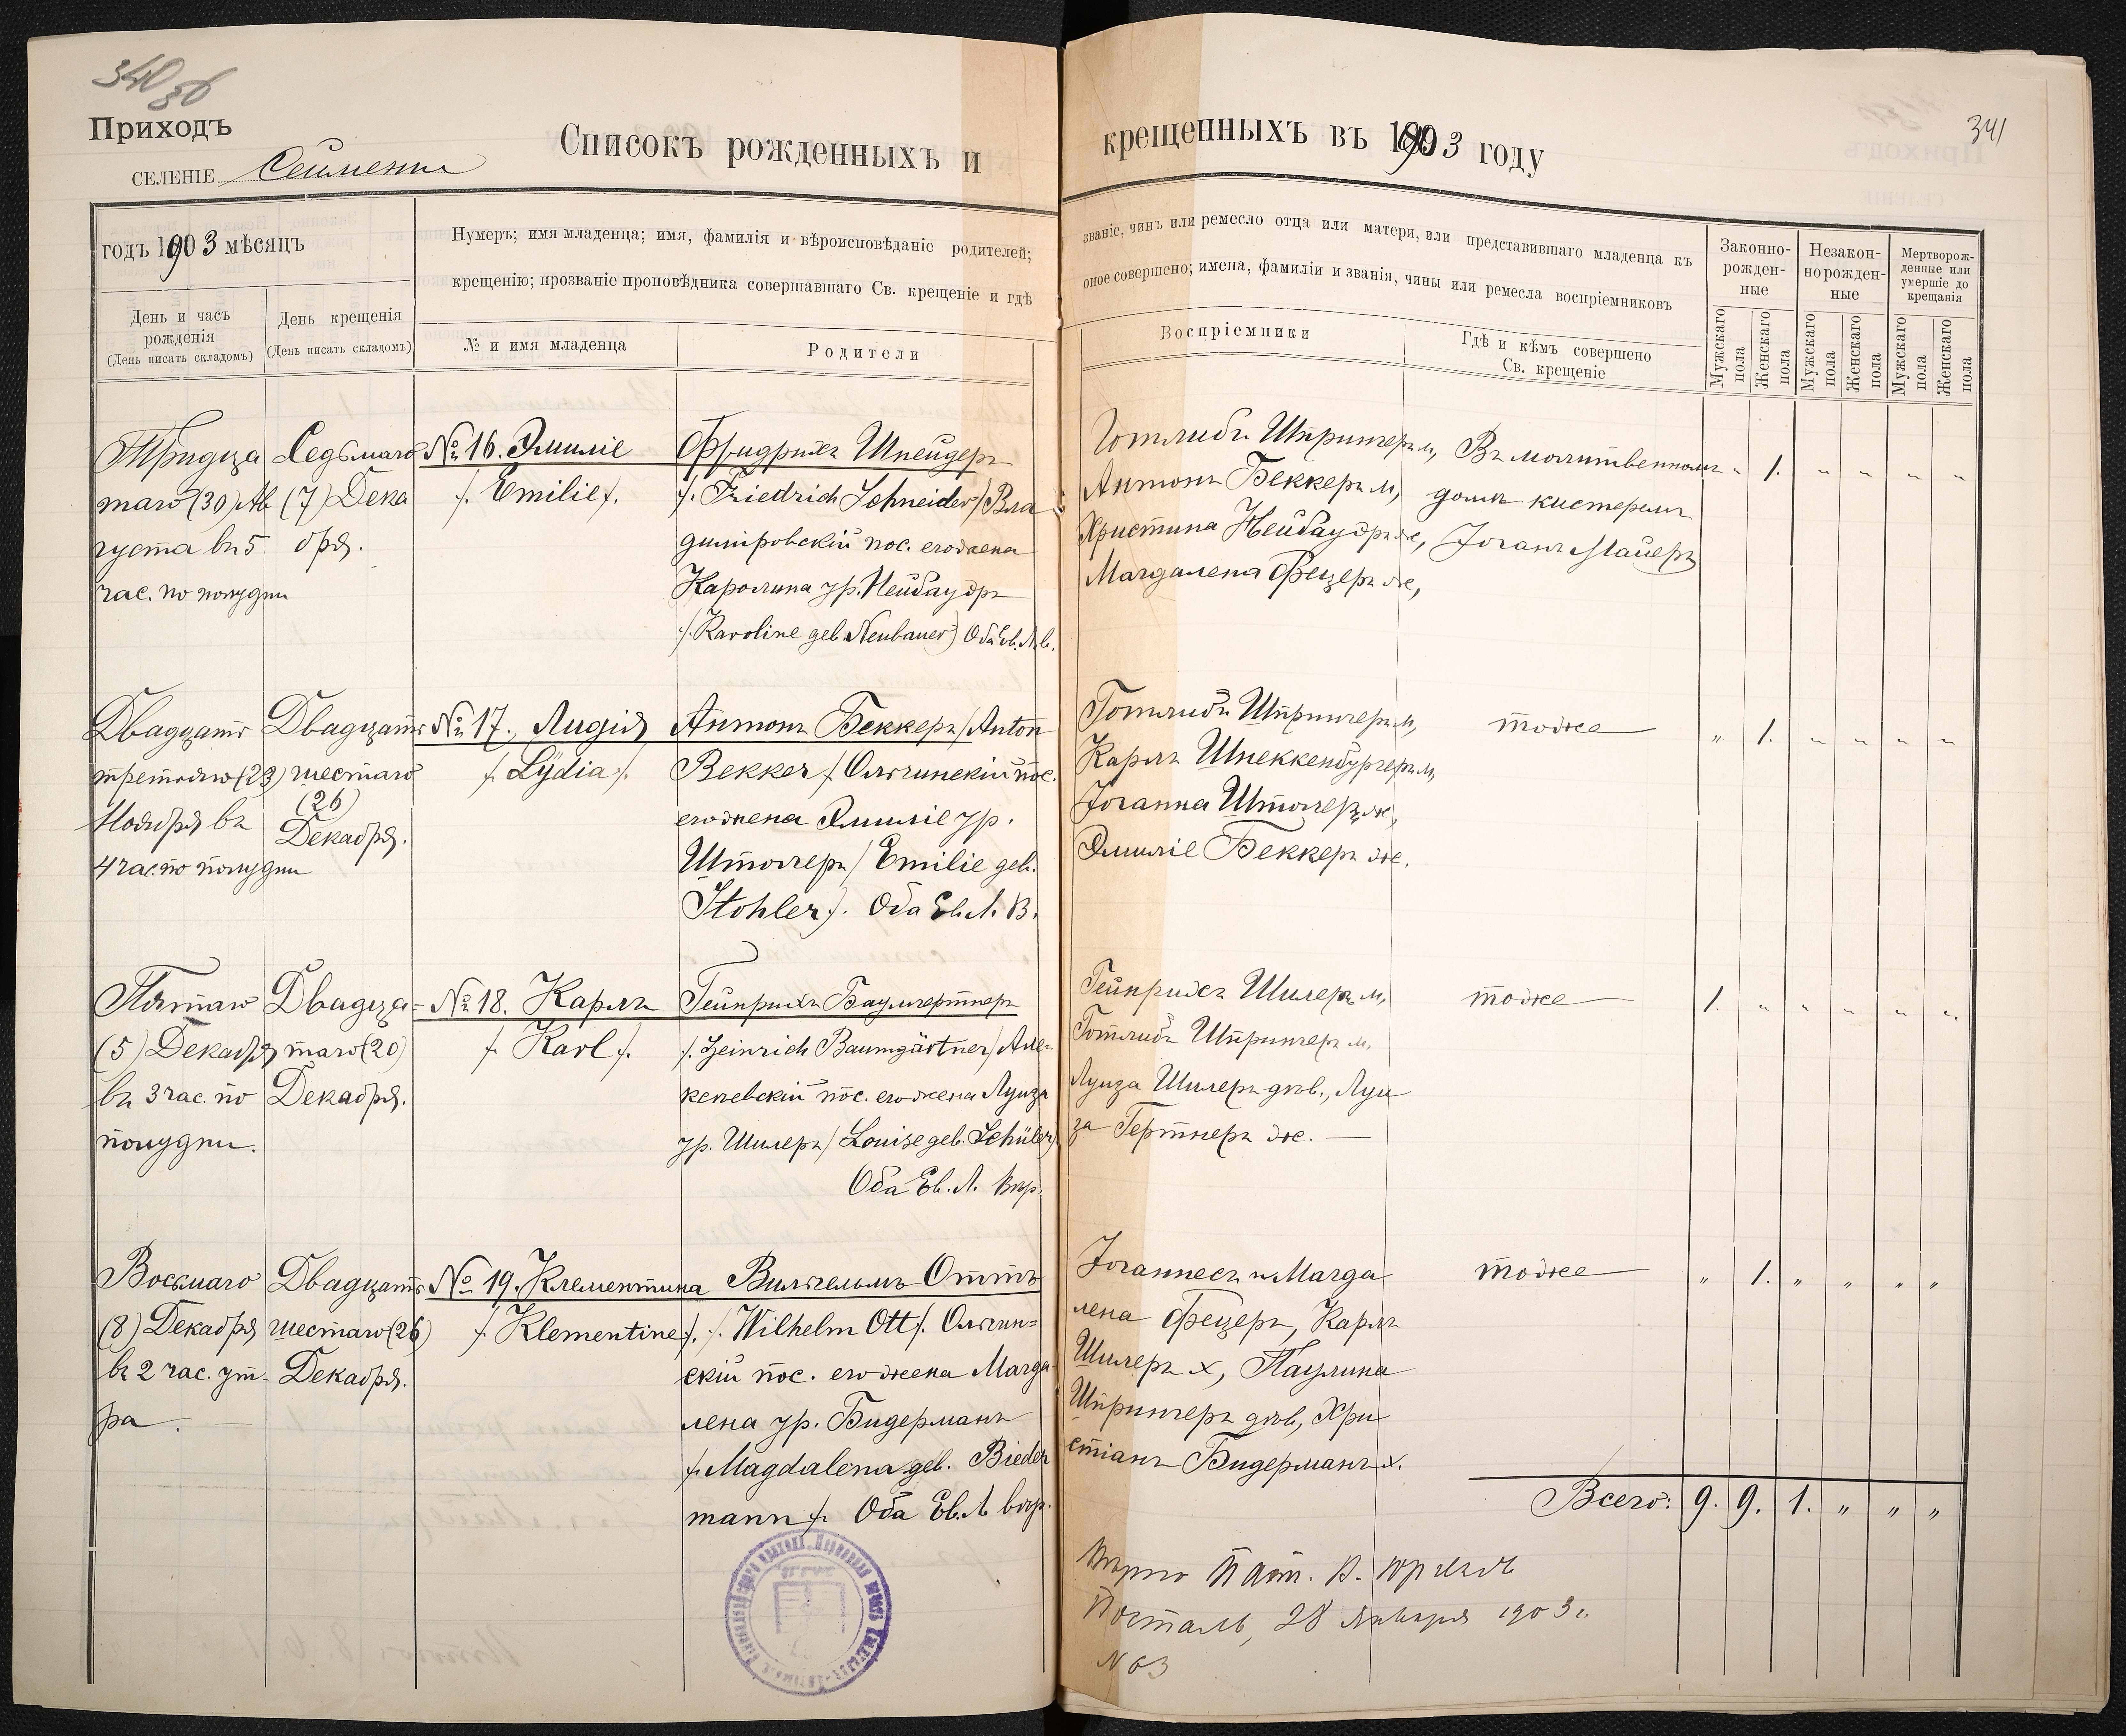 340 об
Приходъ
СЕЛЕНІЕ Сеймены
Списокъ рожденныхъ и
крещенныхъ въ 1903 году
341
годъ 1903 мѣсяцъ
День и часъ рожденія
(День писать складомъ)
День крещенія
(День писать складомъ)
Нумеръ; имя младенца; имя, фамилія и вѣроисповѣданіе родителей;
крещенію; прозваніе проповѣдника совершавшаго Св. крещеніе и гдѣ
№ и имя младенца
Родители
званіе, чинъ или ремесло отца или матери, или представившаго младенца къ
оное совершено; имена, фамиліи и званія, чины или ремесла воспріемниковъ
Воспріемники
Гдѣ и кѣмъ совершено
Св. крещеніе
Законно-
рожден-
ные
Незакон-
норожден-
ные
Мертворож-
денные или
умершіе до
крещанія
Мужскаго пола
Женскаго пола
Мужскаго пола
Женскаго пола
Мужскаго пола
Женскаго пола
Тридца
таго (30) Ав
густа въ 5
час. по полудни
Седьмаго
(7) Дека
бря.
№ 16. Эмиліе
/. Emilie /.
Фридрихъ Шнейдеръ
/. Friedrich Schneider / Вла
димировскій пос. его жена
Каролина ур. Нейбауэръ
/. Karoline geb. Neubauer) Оба Ев. Л. в.
Готлибъ Шпрингеръ м,
Антонъ Беккеръ м,
Христина Нейбауэръ ж,
Магдалена Фецеръ ж,
Въ молитвенномъ
домѣ кистеремъ
Іоганъ Майеръ
„ 1. „ „ „ „
Двадцать
третьяго (23)
Ноября въ
4 час. по полудни
Двадцать
шестаго
(26)
Декабря.
№ 17. Лидія
/. Lÿdia /.
Антонъ Беккеръ / Anton
Bekker / Ольгинскій пос.
его жена Эмиліе ур.
Штолеръ / Emilie geb.
Stohler /. Оба Ев. Л. В.
Готлибъ Шпрингеръ м,
Карлъ Шнеккенбургеръ м,
Іоганна Штолеръ ж,
Эмиліе Беккеръ ж.
тоже
„ 1. „ „ „ „
Пятаго
(5) Декабря
въ 3 час. по
полудни.
Двадца-
таго (20)
Декабря.
№ 18. Карлъ
/. Karl /.
Гейнрихъ Баумгертнеръ
/. Heinrich Baumgärtner / Але
ксеевскій пос. его жена Луиза
ур. Шилеръ / Louise geb. Schüler /
Оба Ев. Л. вѣр.
Гейнрихъ Шилеръ м,
Готлибъ Шпрингеръ м,
Луиза Шилеръ дѣв., Луи
за Гертнеръ ж. —
тоже
1. „ „ „ „ „
Восьмаго
(8) Декабря
въ 2 час. ут-
ра.
Двадцать
шестаго (26)
Декабря.
№ 19. Клементина
/. Klementine /.
Вильгельмъ Оттъ
/. Wilhelm Ott /. Ольгин=
скій пос. его жена Магда
лена ур. Бидерманъ
/. Magdalena geb. Bieder
mann /. Оба Ев. Л. вѣр.
Іоганнесъ и Магда
лена Фецеръ, Карлъ
Шилеръ х, Паулина
Шпрингеръ дѣв, Хри
стіанъ Бидерманъ х.
тоже
„ 1. „ „ „ „
Всего: 9. 9. 1. „ „ „
Вѣрно Паст.
28 Января 1903 г.
N 63